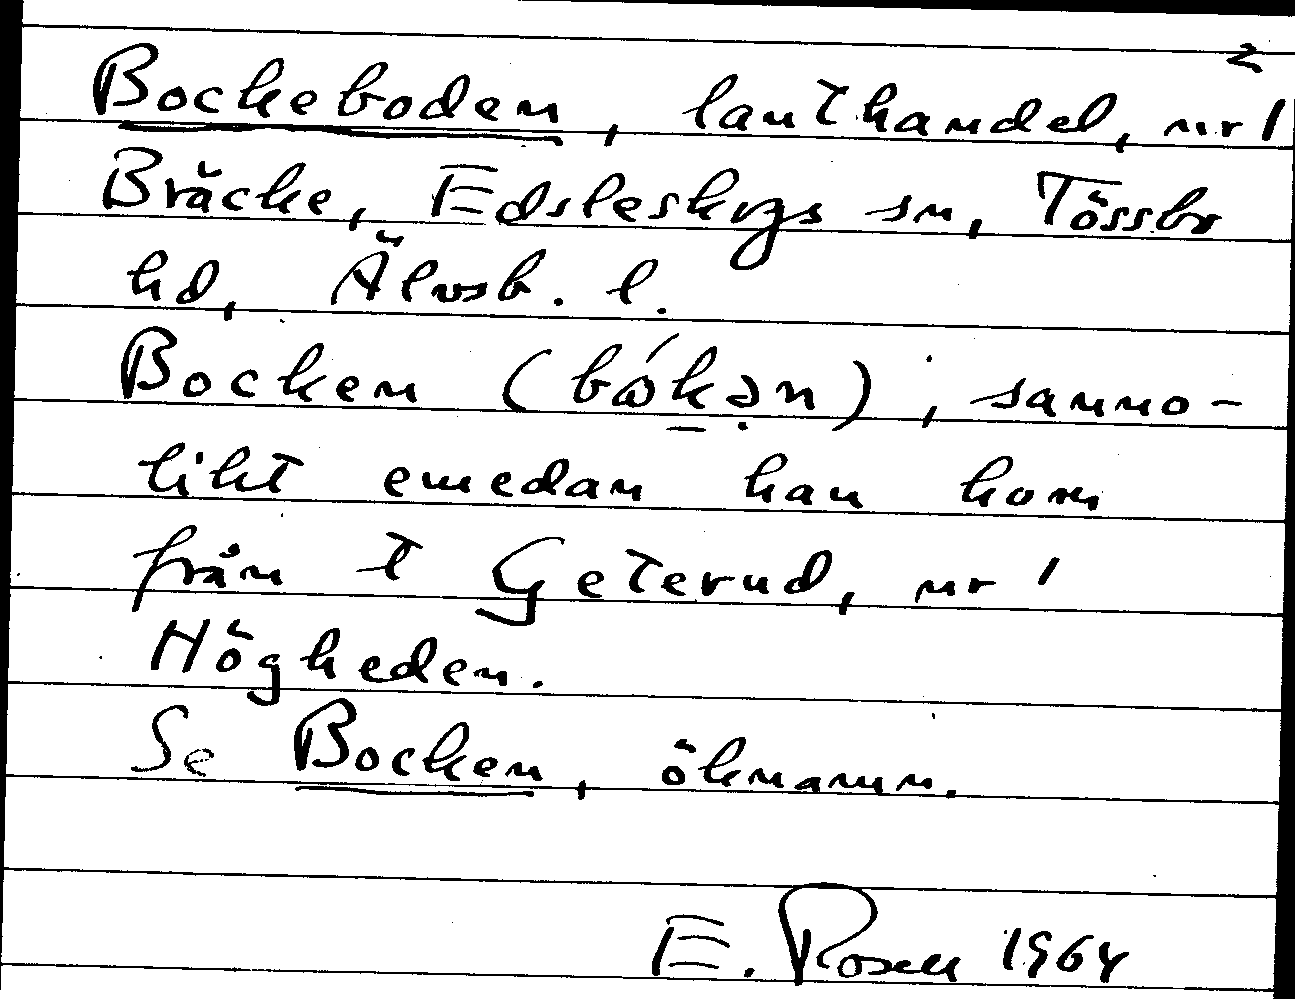 2
Bockeboden, lanthandel, nr 1
Bräcke, Edsleskogs sn, Tössbo
hd, Älvsb. l.
Bocken (bɷ́kən), sanno-
likt emedan han kom
från t Geterud, nr 1
Högheden.
Se Bocken, öknamn.
E. Rosell 1964